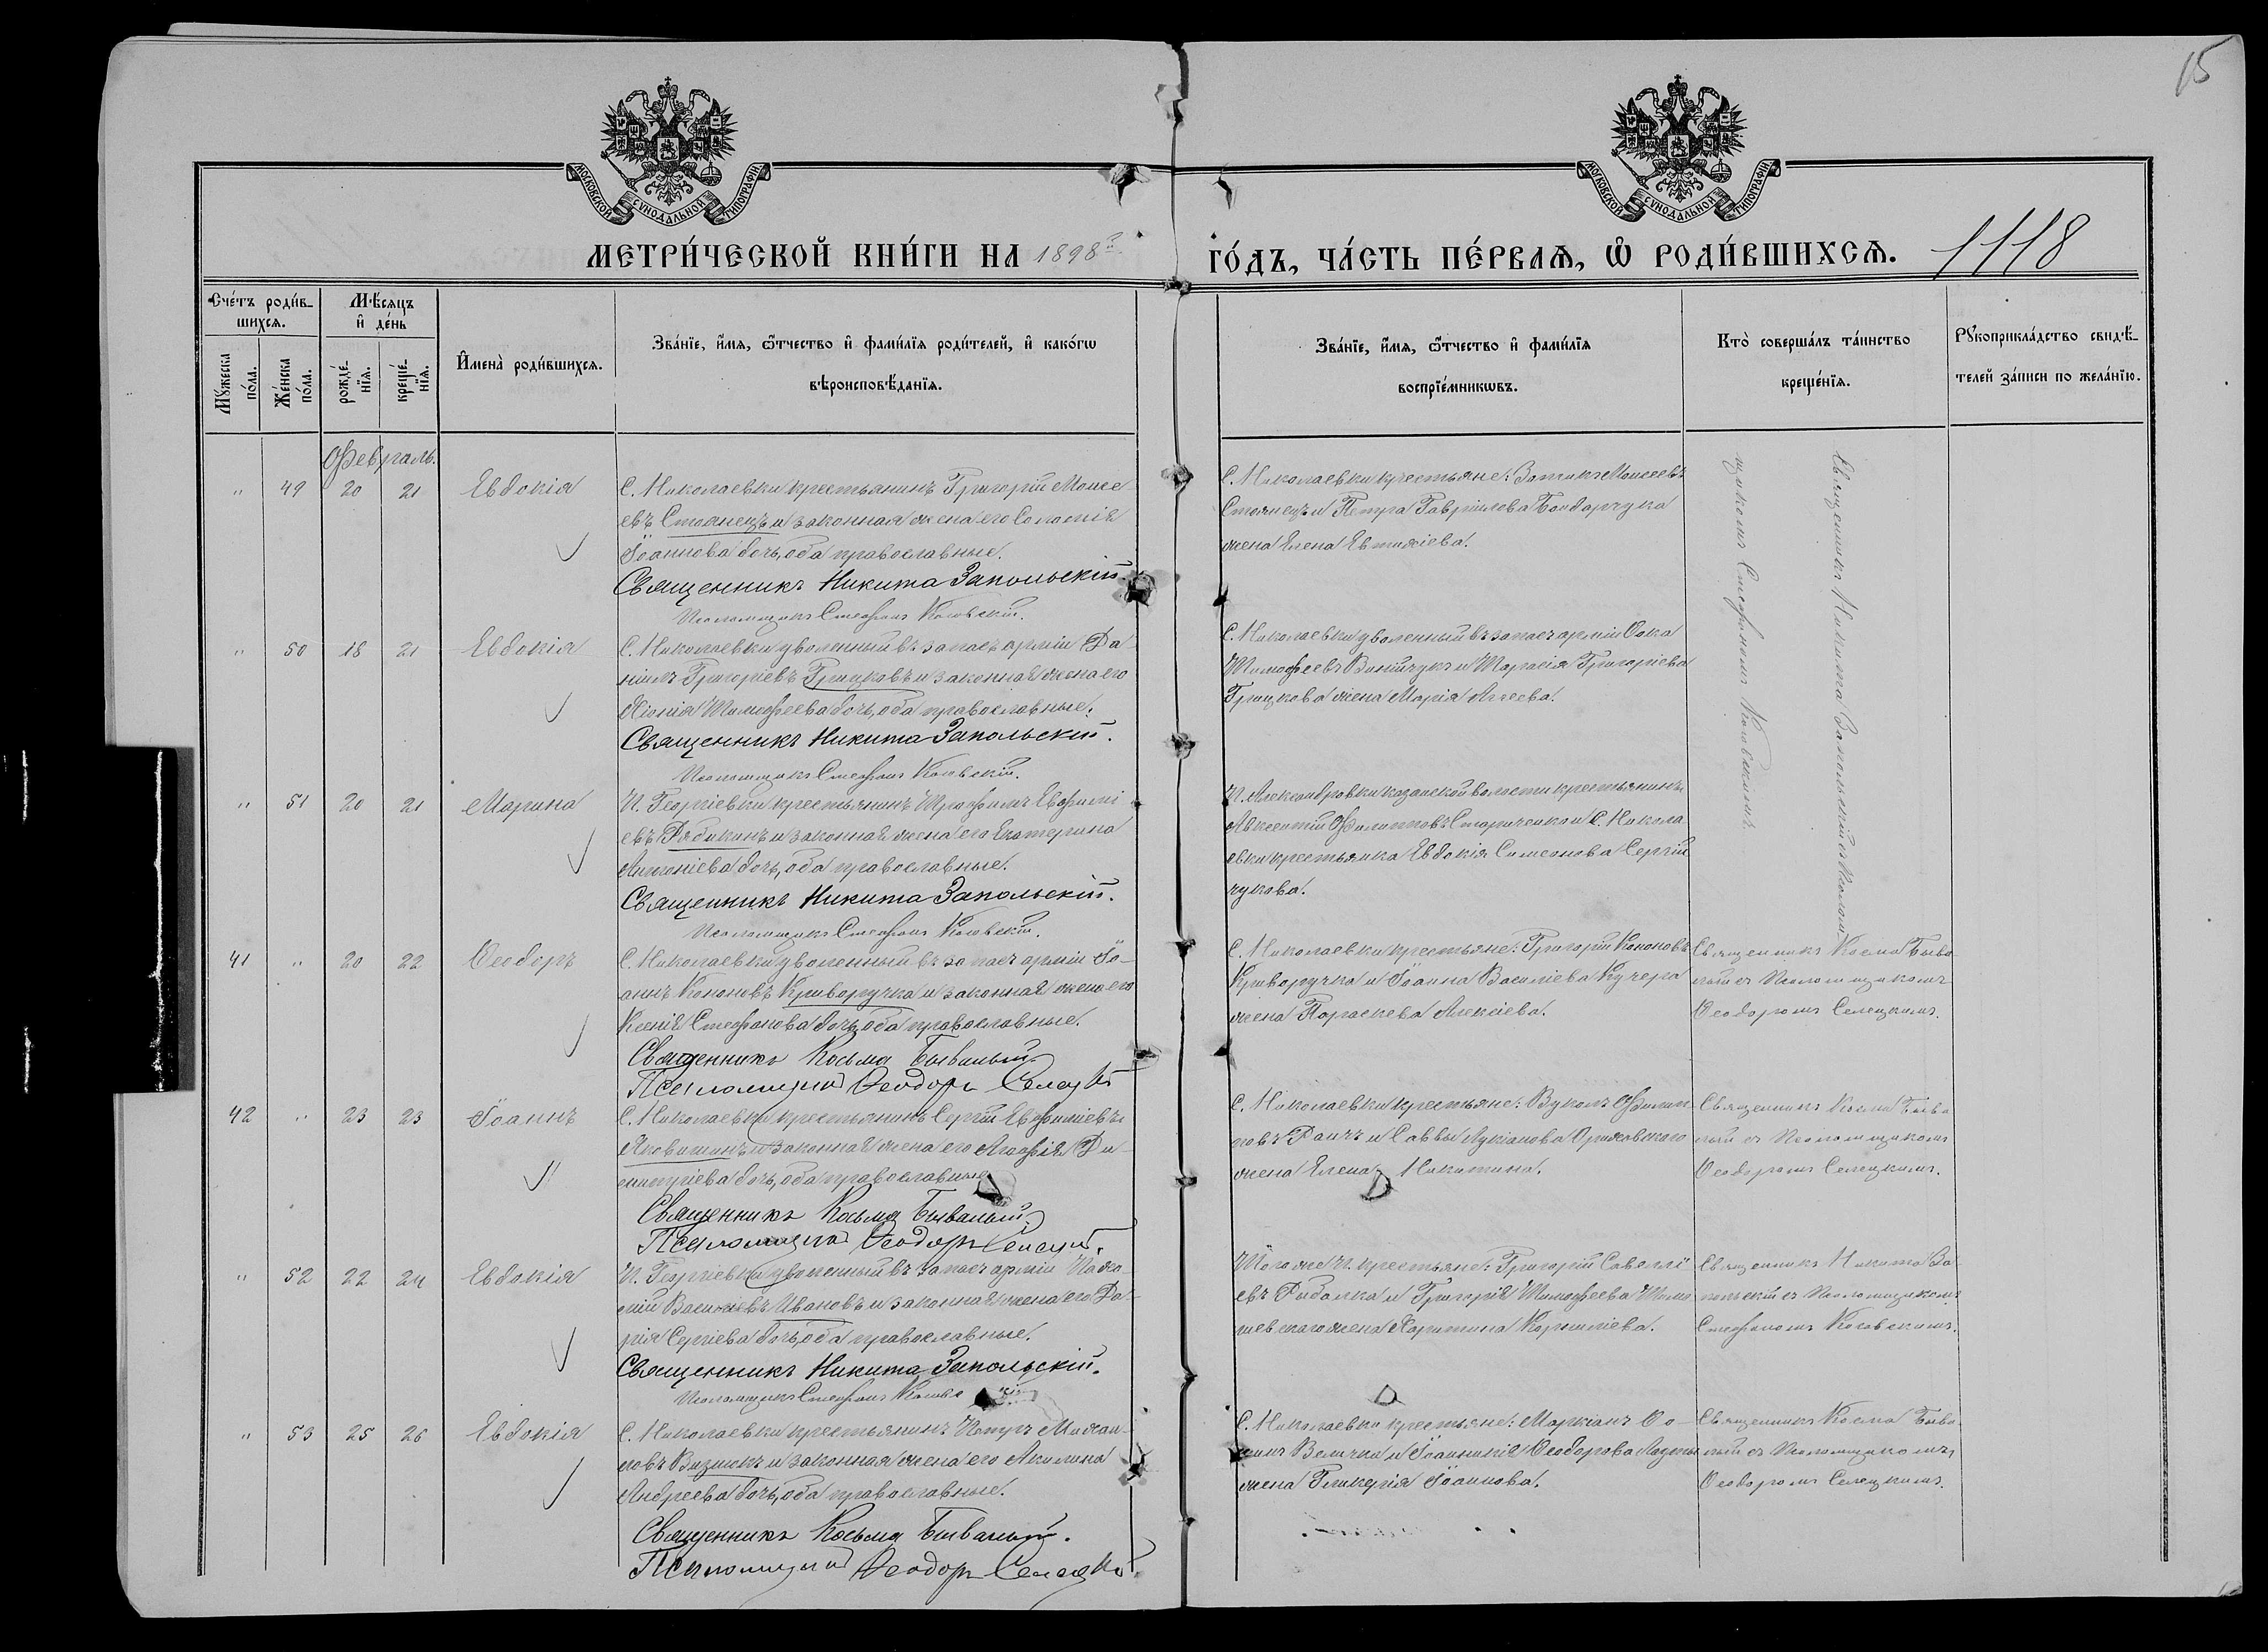 15
МОСКОВСКОЙ СУНОДАЛЬНОЙ ТИПОГРАФІИ.
МОСКОВСКОЙ СУНОДАЛЬНОЙ ТИПОГРАФІИ.
МЕТРИ́ЧЕСКОЙ КНИ́ГИ НА 1898 г.
ГО́ДЪ, ЧА́СТЬ ПЕ́РВАѦ, Ѽ РОДИ́ВШИХСѦ. 1118
Сче́тъ роди́в-
шихсѧ.
Мꙋжеска
по́ла.
Же́нска
по́ла.
Мѣ́сѧцъ
и҆ де́нь
рожде́-
нїѧ.
креще́-
нїѧ.
И҆мена̀ роди́вшихсѧ.
Зва́нїе, и҆́мѧ, ѻ҆́тчество и҆ фами́лїѧ роди́телей, и҆ како́гѡ
вѣроисповѣ́данїѧ.
Зва́нїе, и҆́мѧ, ѻ҆́тчество и҆ фами́лїѧ
воспрїе́мникѡвъ.
Кто̀ соверша́лъ та́инство
креще́нїѧ.
Рꙋкоприкла́дство свидѣ́-
телей за́писи по жела́нїю.
Февраль.
" 49 20 21 Евдокія
С. Николаевки крестьянинъ Григорій Моисе-
евъ Стоянецъ и законная жена его Соломія
Іоаннова дочь, оба православные.
Священникъ Никита Запольскій.
Псаломщикъ Стефанъ
С. Николаевки крестьяне: Зотикъ Моисеевъ
Стоянецъ и Петра Гавріилова Бондарчука
жена Елена Евтихіева.
Священникъ Никита Запольскій съ Псалом-
щикомъ Стефаномъ
" 50 18 21 Евдокія
С. Николаевки уволенный въ запасъ арміи Да-
ніилъ Григоріевъ Грицковъ и законная жена его
Хіонія Тимофеева дочь, оба православные.
Священникъ Никита Запольскій.
Псаломщикъ Стефанъ
С. Николаевки уволенный въ запасъ арміи Фока
Тимофеевъ Войтчукъ и Тарасія Григоріева
Грицкова жена Марія Аггеева.
" 51 20 21 Марина
П. Георгіевки крестьянинъ Трофимъ Евфимі-
евъ Рябикинъ и законная жена его Екатерина
Антоніева дочь, оба православные.
Священникъ Никита Запольскій.
Псаломщикъ Стефанъ
П. Александровки Казанской волости крестьянинъ
Авксентій Филипповъ Стариченко и С. Никола-
евки крестьянка Евдокія Симеонова Сергій-
чукова.
41 " 20 22 Ѳеодоръ
С. Николаевки уволенный въ запасъ арміи Іо-
аннъ Кононовъ Криворучка и законная жена его
Ксенія Стефанова дочь, оба православные.
Священникъ Косьма Бывалый
Псаломщикъ Ѳеодоръ Селецкій
С. Николаевки крестьяне: Григорій Кононовъ
Криворучка и Іоанна Василіева Кучера
жена Параскева Алексіева.
Священникъ Косма Быва-
лый съ Псаломщикомъ
Ѳеодоромъ Селецкимъ.
42 " 23 23 Іоаннъ
С. Николаевки крестьянинъ Сергій Евфиміевъ
Яковишинъ и законная жена его Агафія Ди-
митріева дочь, оба православные.
Священникъ Косьма Бывалый
Псаломщикъ Ѳеодоръ Селецкій.
С. Николаевки крестьяне: Вуколъ Филип-
повъ и Саввы Лукіанова Оржеховского
жена Елена Никитина.
Священникъ Косма Быва-
лый съ Псаломщикомъ
Ѳеодоромъ Селецкимъ.
" 52 22 24 Евдокія
П. Георгіевки уволенный въ запасъ арміи Пахо-
мій Василіевъ Ивановъ и законная жена его Да-
рія Сергіева дочь, оба православные.
Священникъ Никита Запольскій.
Псаломщикъ Стефанъ
Того же п. крестьяне: Григорій Савеллі-
евъ Рибалка и Григорія Тимофеева Тома-
шевскаго жена Харитина Корниліева.
Священникъ Никита За-
польскій съ Псаломщикомъ
Стефаномъ
" 53 25 26 Евдокія
С. Николаевки крестьянинъ Петръ Михаи-
ловъ Визнюкъ и законная жена его Акилина
Андреева дочь, оба православные.
Священникъ Косьма Бывалый.
Псаломщикъ Ѳеодоръ Селецкій.
С. Николаевки крестьяне: Маркіанъ Ѳо-
минъ Величко и Іоанникія Ѳеодорова
жена Гликерія Іоаннова.
Священникъ Косма Быва-
лый съ Псаломщикомъ
Ѳеодоромъ Селецкимъ.